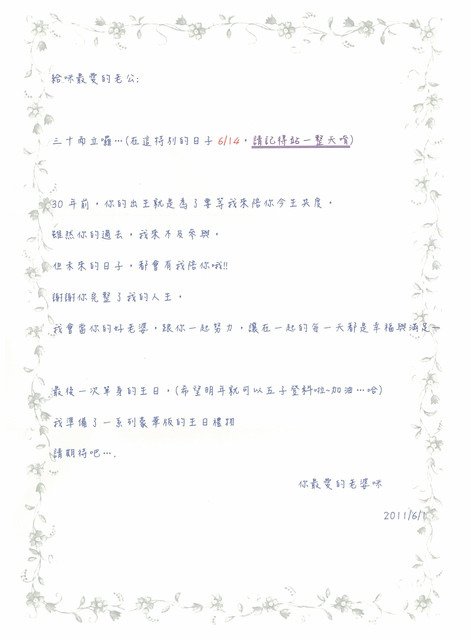 給咪最愛的老公:
三十而立囉…(在這特別的日子 6/14，請記得站一整天唷)
30 年前，你的出生就是為了要等我來陪你今生共度，
雖然你的過去，我來不及參與，
但未來的日子，都會有我陪你哦!!
謝謝你完整了我的人生，
我會當你的好老婆，跟你一起努力，讓在一起的每一天都是幸福與滿足~
最後一次單身的生日，(希望明年就可以五子登科啦~加油…哈)
我準備了一系列豪華版的生日禮物
請期待吧….
你最愛的老婆咪
2011/6/1